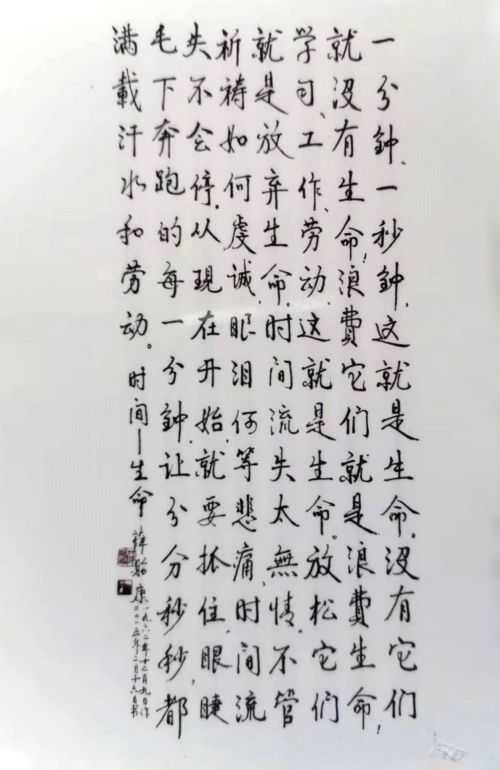 一分钟、一秒钟,这就是生命,没有它们
就没有生命,浪費它们就是浪費生命,
学习、工作、劳动,这就是生命。放松它们
就是放弃生命,时间流失太無情,不管
祈禱如何虔诚,眼泪何等悲痛,时间流
失不会停,从現在开始,就要抓住眼睫
毛下奔跑的每一分钟,让分分秒秒都
满載汗水和劳动。时间—生命 薛 康
一九六二年十二月九日作
二〇一五年二月十六日书